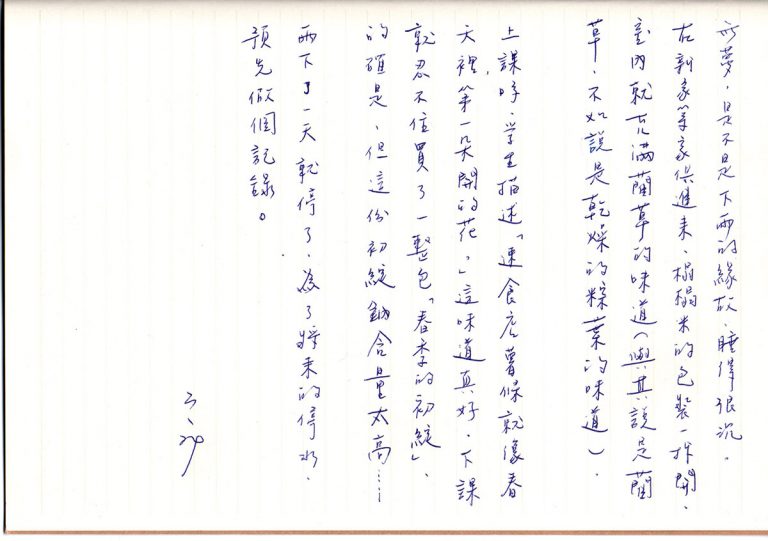 無夢，是不是下雨的緣故，睡得很沉。
在新家等家俱進來，榻榻米的包裝一拆開，
室內就充滿藺草的味道（與其說是藺
草，不如說是乾燥的粽葉的味道）。
上課時，學生描述「速食店薯條就像春
天裡第一朵開的花。」這味道真好，下課
就忍不住買了一整包「春季的初綻」，
的確是，但這份初綻鈉含量太高……
雨下了一天就停了，為了將來的停水，
預先做個記錄。